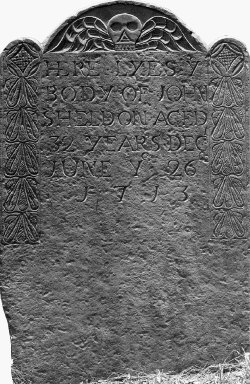 HERE LYES Yᵉ
BODY OF JOHN
SHELDON AGED
32 YEARS DECᴰ
JUNE Yᵉ 26
1713